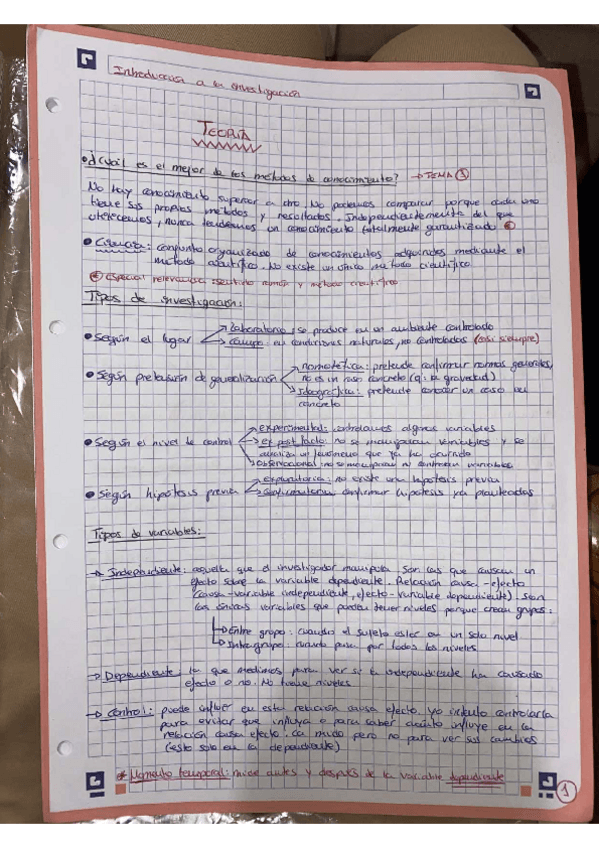 Introducción a la investigación
TEORÍA
• ¿Cuál es el mejor de los métodos de conocimiento? → TEMA 1
No hay conocimiento superior a otro. No podemos comparar porque cada uno
tiene sus propios métodos y resultados. Independientemente del que
utilicemos, nunca tendremos un conocimiento totalmente garantizado *
• Ciencia: conjunto organizado de conocimientos adquiridos mediante el
método científico. No existe un único método científico
* Especial relevancia: sentido común y método científico
Tipos de investigación:
• Según el lugar → laboratorio: se produce en un ambiente controlado
→ campo: en condiciones naturales, no controlados (casi siempre)
• Según pretensión de generalización → nomotética: pretende confirmar normas generales,
no es un caso concreto (ej: la gravedad)
→ Ideográfica: pretende conocer un caso en
concreto
• Según el nivel de control → experimental: controlamos algunas variables
→ ex post facto: no se manipulan variables y se
analiza un fenómeno que ya ha ocurrido
→ observacional: no se manipulan ni controlan variables
• Según hipótesis previa → exploratoria: no existe una hipótesis previa
→ confirmatoria: confirmar hipótesis ya planteadas
Tipos de variables:
→ Independiente: aquella que el investigador manipula. Son las que causan un
efecto sobre la variable dependiente. Relación causa-efecto
(causa-variable independiente, efecto-variable dependiente). Son
las únicas variables que pueden tener niveles porque crean grupos:
→ Entre grupo: cuando el sujeto está en un solo nivel
→ Intra grupo: cuando pasa por todos los niveles
→ Dependiente: la que medimos para ver si la independiente ha causado
efecto o no. No tiene niveles
→ Control: puede influir en esta relación causa efecto. yo intento controlarla
para evitar que influya o para saber cuánto influye en la
relación causa efecto. La mido pero no para ver sus cambios
(esto solo en la dependiente)
* Momento temporal: mide antes y después de la variable dependiente
1